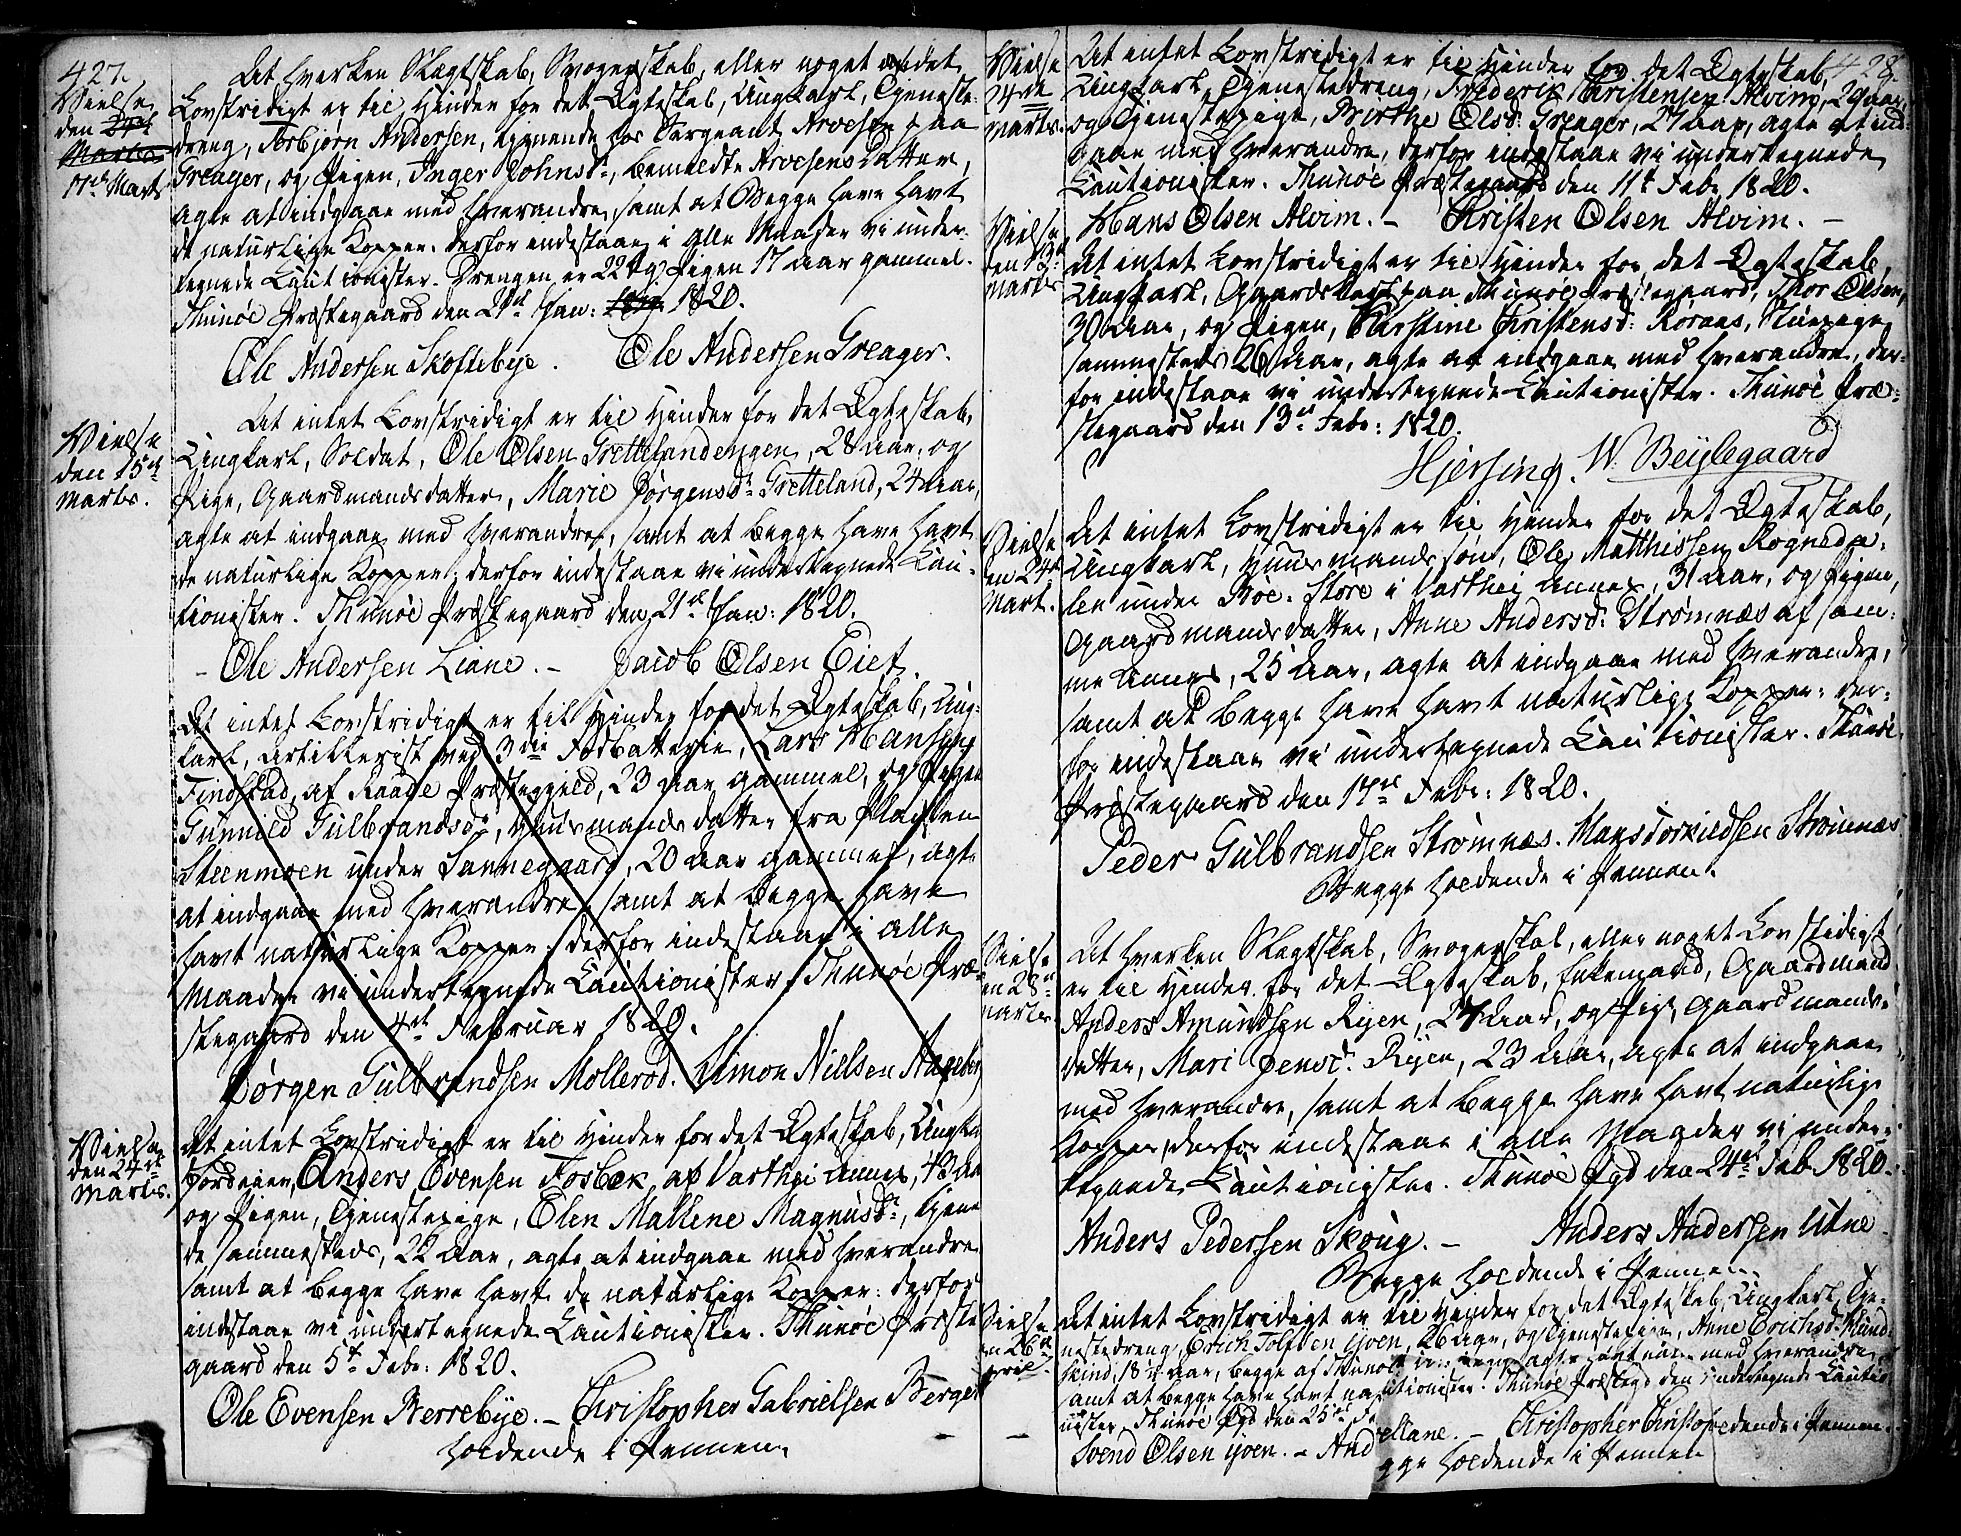 427.
Vielse
den 24de
Martii
17de Mart
At hverken Slægtskab, Svogerskab, eller noget andet
Lovstridigt er til Hinder for det Ægteskab, Ungkarl, Tjeneste-
dreng, Torbjørn Andersen, tjenende hos Sergeant Arvesen paa
Greager, og Pigen, Inger Johnsdr, bemeldte Arvesens Datter,
agte at indgaae med hverandre, samt at Begge have havt
de naturlige Kopper. derfor indestaae i alle Maader vi under-
tegnede Cautionister. Drengen er 22 og Pigen 17 aar gammel.
Thunøe Præstegaard den 21de Jan: 1819 1820.
Ole Andersen Skoftebye. Ole Andersen Greager.
Vielse
den 15de
Martii.
At intet Lovstridigt er til Hinder for det Ægteskab,
Ungkarl, Soldat, Ole Olsen Grettelandengen, 28 aar, og
Pige, Gaardmandsdatter, Marie Jørgensdr Gretteland, 24 aar,
agte at indgaae med hverandre, samt at begge have havt
de naturlige Kopper, derfor indestaae vi undertegnede Cau-
tionister. Thunøe Præstegaard den 21de Jan: 1820.
- Ole Andersen Liane. - Jacob Olsen Eiet
At intet Lovstridigt er til Hinder for det Ægteskab, Ung-
karl, Artillerist ved 3die Fodbatterie, Lars Hansen
Findstad, af Raade Præstegield, 23 aar gammel, og Pigen
Gunnild Gulbrandsdr, Huusmands datter fra Pladsen
Steenmoen under Sannegaard, 20 aar gammel, agte
at indgaae med hverandre, samt at begge have
havt naturlige Kopper; derfor indestaae i alle
Maader vi undertegnede Cautionister. Thunøe Præ-
stegaard den 4de Februar 1820.
Jørgen Gulbrandsen Mollerød. Simon Nielsen Hageberg
Vielse
den 24de
Martii.
At intet Lovstridigt er til Hinder for det Ægteskab, Ungkarl
Jordeier, Anders Evensen Fosbek, af Varthei Annex, 43 aar
og Pigen, Tjenestepige, Elen Mallene Magnusdr, tjenen-
de sammesteds, 22 aar, agte at indgaae med hverandre
samt at begge have havt de naturlige Kopper: derfor
indestaae vi undertegnede Cautionister. Thunøe Præste-
gaard den 5te Febr: 1820.
Ole Evensen Berrebye. - Christopher Gabrielsen Berget
holdende i Pennen.
428.
Vielse
24de
Martii.
At intet Lovstridigt er til Hinder for det Ægteskab,
Ungkarl, Tjenestedreng, Frederik Christensen Alvim, 29 aar,
og Tjenestepige, Birthe Olsdr Greager, 27 aar, agte at ind-
gaae med hverandre, derfor indestaae vi undertegnede
Cautionister. Thunøe Præstegaard den 11te Febr 1820.
Hans Olsen Alvim. - Christen Olsen Alvim. -
Vielse
den 13de
Martii
At intet Lovstridigt er til Hinder for det Ægteskab,
Ungkarl, Gaardskarl paa Thunøe Præstegaard, Thor Olsen,
30 aar, og Pigen, Kirstine Christensdr: Roraas, Stuepige
sammesteds, 26 aar, agte at indgaae med hverandre, der-
for indestaae vi undertegnede Cautionister. Thunøe Præ-
stegaard den 13de Febr: 1820.
Hjersing. W. Beylegaard
Vielse
den 24de
Mart.
At intet Lovstridigt er til Hinder for det Ægteskab,
Ungkarl, Huusmands søn, Ole Matthissen Rogneda-
len under Store i Varthei Annex, 31 aar, og Pigen,
Gaardmandsdatter, Anne Andersdr: Strømnæs af sam-
me Annex, 25 aar, agte at indgaae med hverandre,
samt at begge have havt naturlige Kopper: der-
for indestaae vi undertegnede Cautionister. Thunøe
Præstegaard den 17de Febr: 1820.
Peder Gulbrandsen Strømnæs. Mons Torkildsen Strømnæs
Begge holdende i Pennen.
Vielse
en 28de
Martii
At hverken Slægtskab, Svogerskab, eller noget Lovstridigt
er til Hinder for det Ægteskab, Enkemand, Gaardmand
Anders Amundsen Rijen, 24 aar, og Pige, Gaardmands-
datter, Mari Jensdr. Rijen, 23 aar, agte at indgaae
med hverandre, samt at begge have havt naturlige
Kopper, derfor indestaae i alle Maader vi under-
tegnede Cautionister. Thunøe Pgd den 24de Feb 1820.
Anders Pedersen Skoug. - Anders Andersen Utne
Begge holdende i Pennen.
Vielse
en 26de
pril
At intet Lovstridigt er til Hinder for det Ægteskab, Ungkarl, Tje-
nestedreng, Erich Tolfsen Goen, 26 aar, og Tjenestepige, Anne Erichsdr. Mund-
skind, 18 aar, begge af Thunøe med hverandre,
samt at begge have havt na tionister. Thunøe Præstegd den undertegnede Cautio-
nister. Thunøe Pgd den 25de F
Svend Olsen Goen. - And eliane. - Christopher Christop edende i Pennen.
gge holdende i Pennen